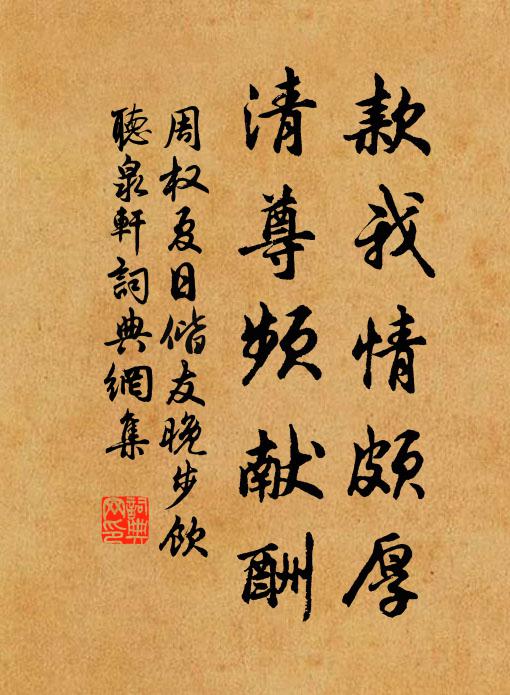 款我情頗厚
清尊頻献酬
周权夏日偕友晚步飲
聽泉軒詞典網集
詞典
网印